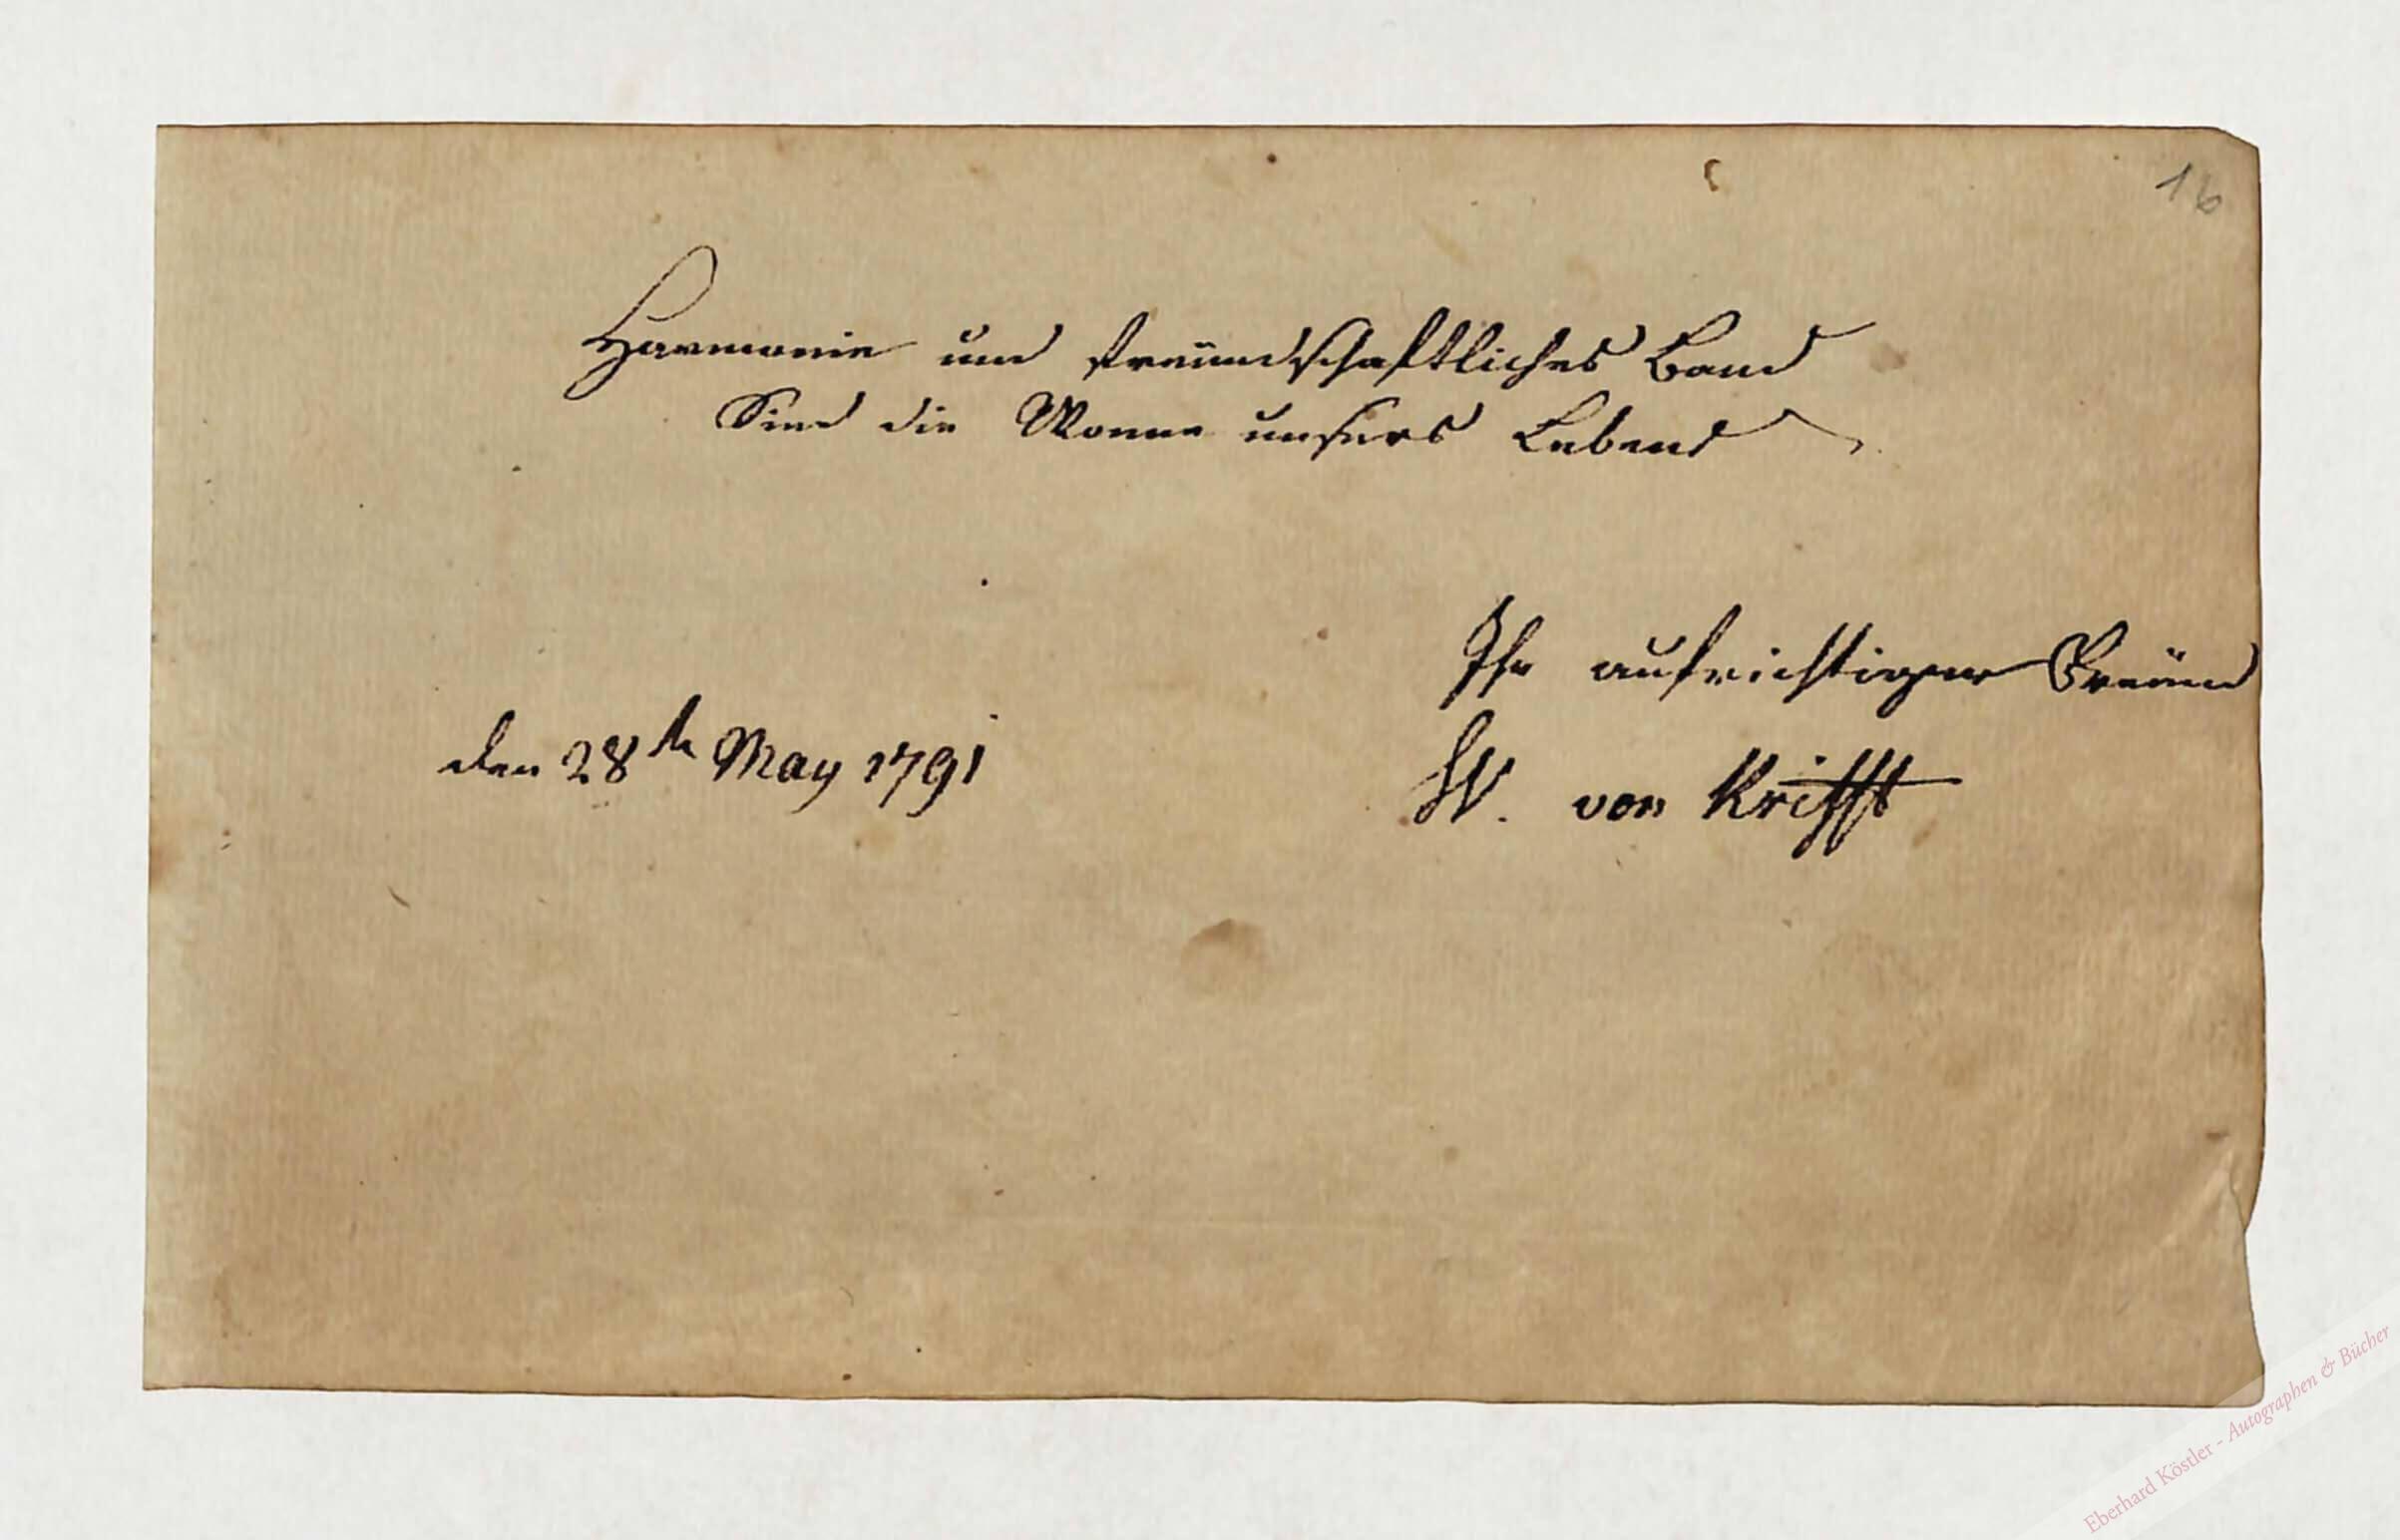 16
Harmonie und freundschaftliches Band
Sind die Wonne unsers Lebens
Ihr aufrichtiger Freund
den 28th May 1791
W. von Krifft
Eberhard Köstler - Autographen & Bücher